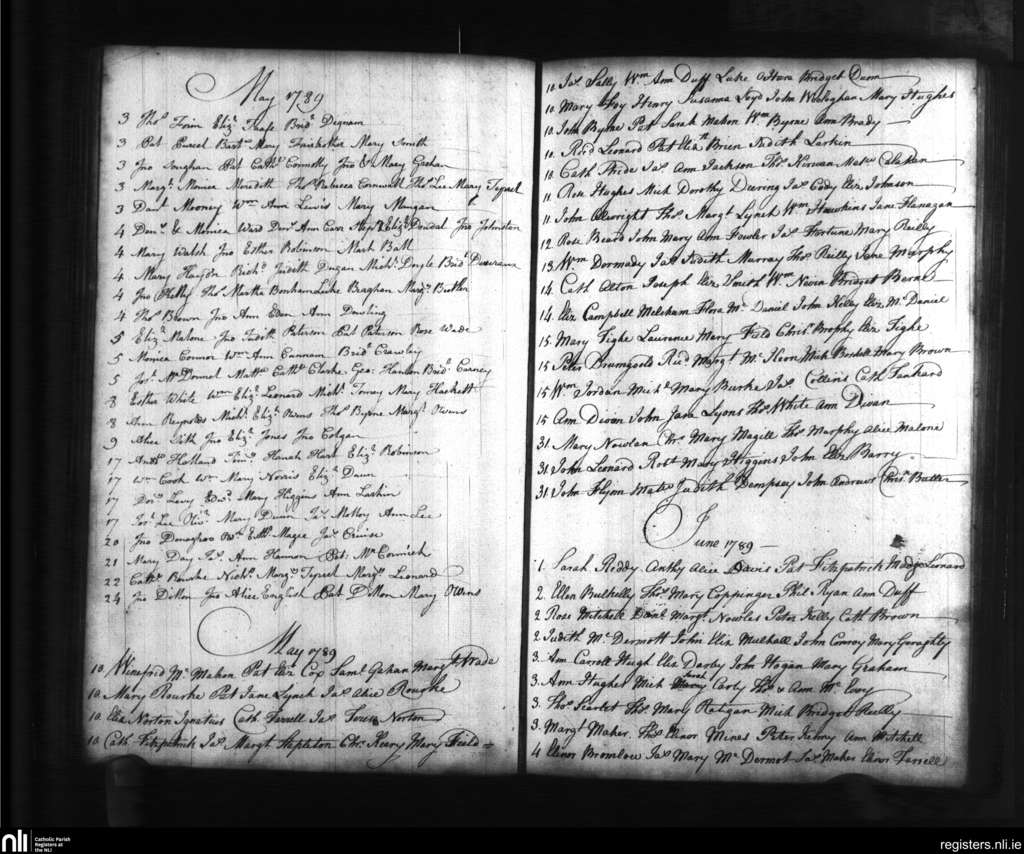 May 1789
3 Thos Finn Elizh Taafe Bridt Degnam
3 Pat Purcel Bartw Mary Mary Smith
3 Jno Pat Cathe Connolly Jno & Mary Grehan
3 Margt Monica Meredith Thos Rebecca Cornwall Thos Lee Mary Tyrrel
3 Danl Mooney Wm Ann Lewis Mary Mangan
4 Denis & Monica Ward Ann Carr Elizth Dowdal Jno Johnston
4 Mary Walsh Jno Esther Robinson Mark Ball
4 Mary Haydn Richd Judith Dugan Michl Doyle Brid
4 Jno Thos Martha Bonham Luke Braghan Margt Butler
4 Thos Brown Jno Ann Eden Ann Dowling
5 Eliz Malone Jno Judith Peterson Pat Peterson Rose Wade
5 Monica Connor Wm Ann Cannam Bridt Crawley
5 Mc Donnel Mattw Cathe Clarke Geo: Hanlon Bridt Carney
8 Esther White Wm Eliz Leonard Michl Toney Mary Hackett
8 Ann Reynolds Michl Eliz Owens Thos Byrne Margt Owens
9 Alice Jno Eliz Jones Jno Colgan
17 Holland Timy Hanah Hart Eliz Robinson
17 Wm Cook Wm Mary Norris Eliz Dawn
17 Levy Edwd Mary Higgins Ann Larkin
17 Lee Mary Ja Ann Lee
20 Jno Donaghoo Esthr Magee Jas Cruise
21 Mary Day Jas Ann Harmon Pat: Mc Cormick
22 Cathe Bourke Nichs Margt Tyrrel Margt Leonard
24 Jno Dillon Jno Alice English Pat Dillon Mary Owens
May 1789
10 Winefrid Mc Mahon Pat Eliz Cox Saml Gahan Mary Wade
10 Mary Rourke Pat Jane Lynch Jas Alice Rourke
10 Eliz Norton Ignatius Cath Farrell Jas Norton
10 Cath Fitzpatrick Jas Margt Stapleton Chr. Keary Mary Field
10 Jas Sally Wm Ann Duff Luke OHara Bridget Dunn
10 Mary Foy Henry Susanna Loyd John Woologhan Mary Hughes
10 John Byrne Pat Sarah Mahon Wm Byrne Ann Brady
10 Leonard Pat Elizth Brien Judith Larkin
10 Cath Pride Jas Ann Jackson Thos Kirwan
11 Rose Hughes Mich Dorothy Deering Jas Cody Eliz Johnson
11 John Thos Margt Lynch Wm Hawkins Jane Flanagan
12 Rose Beard John Mary Ann Fowler Jas Fortune Mary Reilly
13 Wm Dormady Jas Judith Murray Thos Reilly Jane Murphy
14 Cath Alton Joseph Eliz Smith Wm Nevin Bridget Berne
14 Eliz Campbell Flora Mc Daniel John Kelly Eliz Mc Daniel
15 Mary Tighe Laurence Mary Field Christr Brophy Eliz Tighe
15 Peter Drumgoole Ricd Margt Mich Mary Brown
15 Wm Jordan Mich Mary Burke Jas Collins Cath Tankard
15 Ann Divan John Jane Lyons Thos White Ann Divan
31 Mary Nowlan Chr Mary Magill Thos Murphy Alice Malone
31 John Leonard Robt Mary Higgins John Eliz Barry
31 John Flynn Judith Dempsey John Andrews Christr Butler
June 1789
1 Sarah Reddy Anthy Alice Davis Pat Fitzpatrick Leonard
2 Ellen Bulkelly Thos Mary Coppinger Phil Ryan Ann Duff
2 Rose Mitchell Danl Margt Nowles Peter Kelly Cath Brown
2 Judith Mc Dermott John Eliz Mulhall John Conroy Mary Geraghty
3 Ann Carroll Hugh Eliz Darby John Hogan Mary Graham
3 Ann Hughes Mich Carty Thos & Ann Mc Evoy
3 Thos Scarlet Thos Mary Ratigan Mich Bridget Reilly
3 Margt Maher Thos Elinor Mines Peter Kelly Ann Mitchell
4 Elinor Bromlow Jas Mary Mc Dermot Jas Maher Elinor Farrell
nli
Catholic Parish
Registers at
the NLI
registers.nli.ie